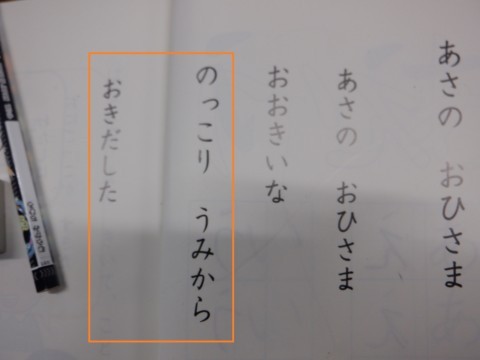 あさの おひさま
あさの おひさま
おおきいな
のっこり うみから
おきだした